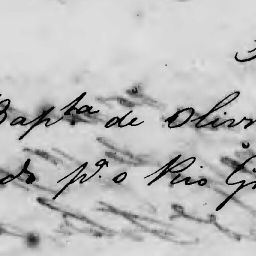 Bapta de Oliv
do pa. o Rio G